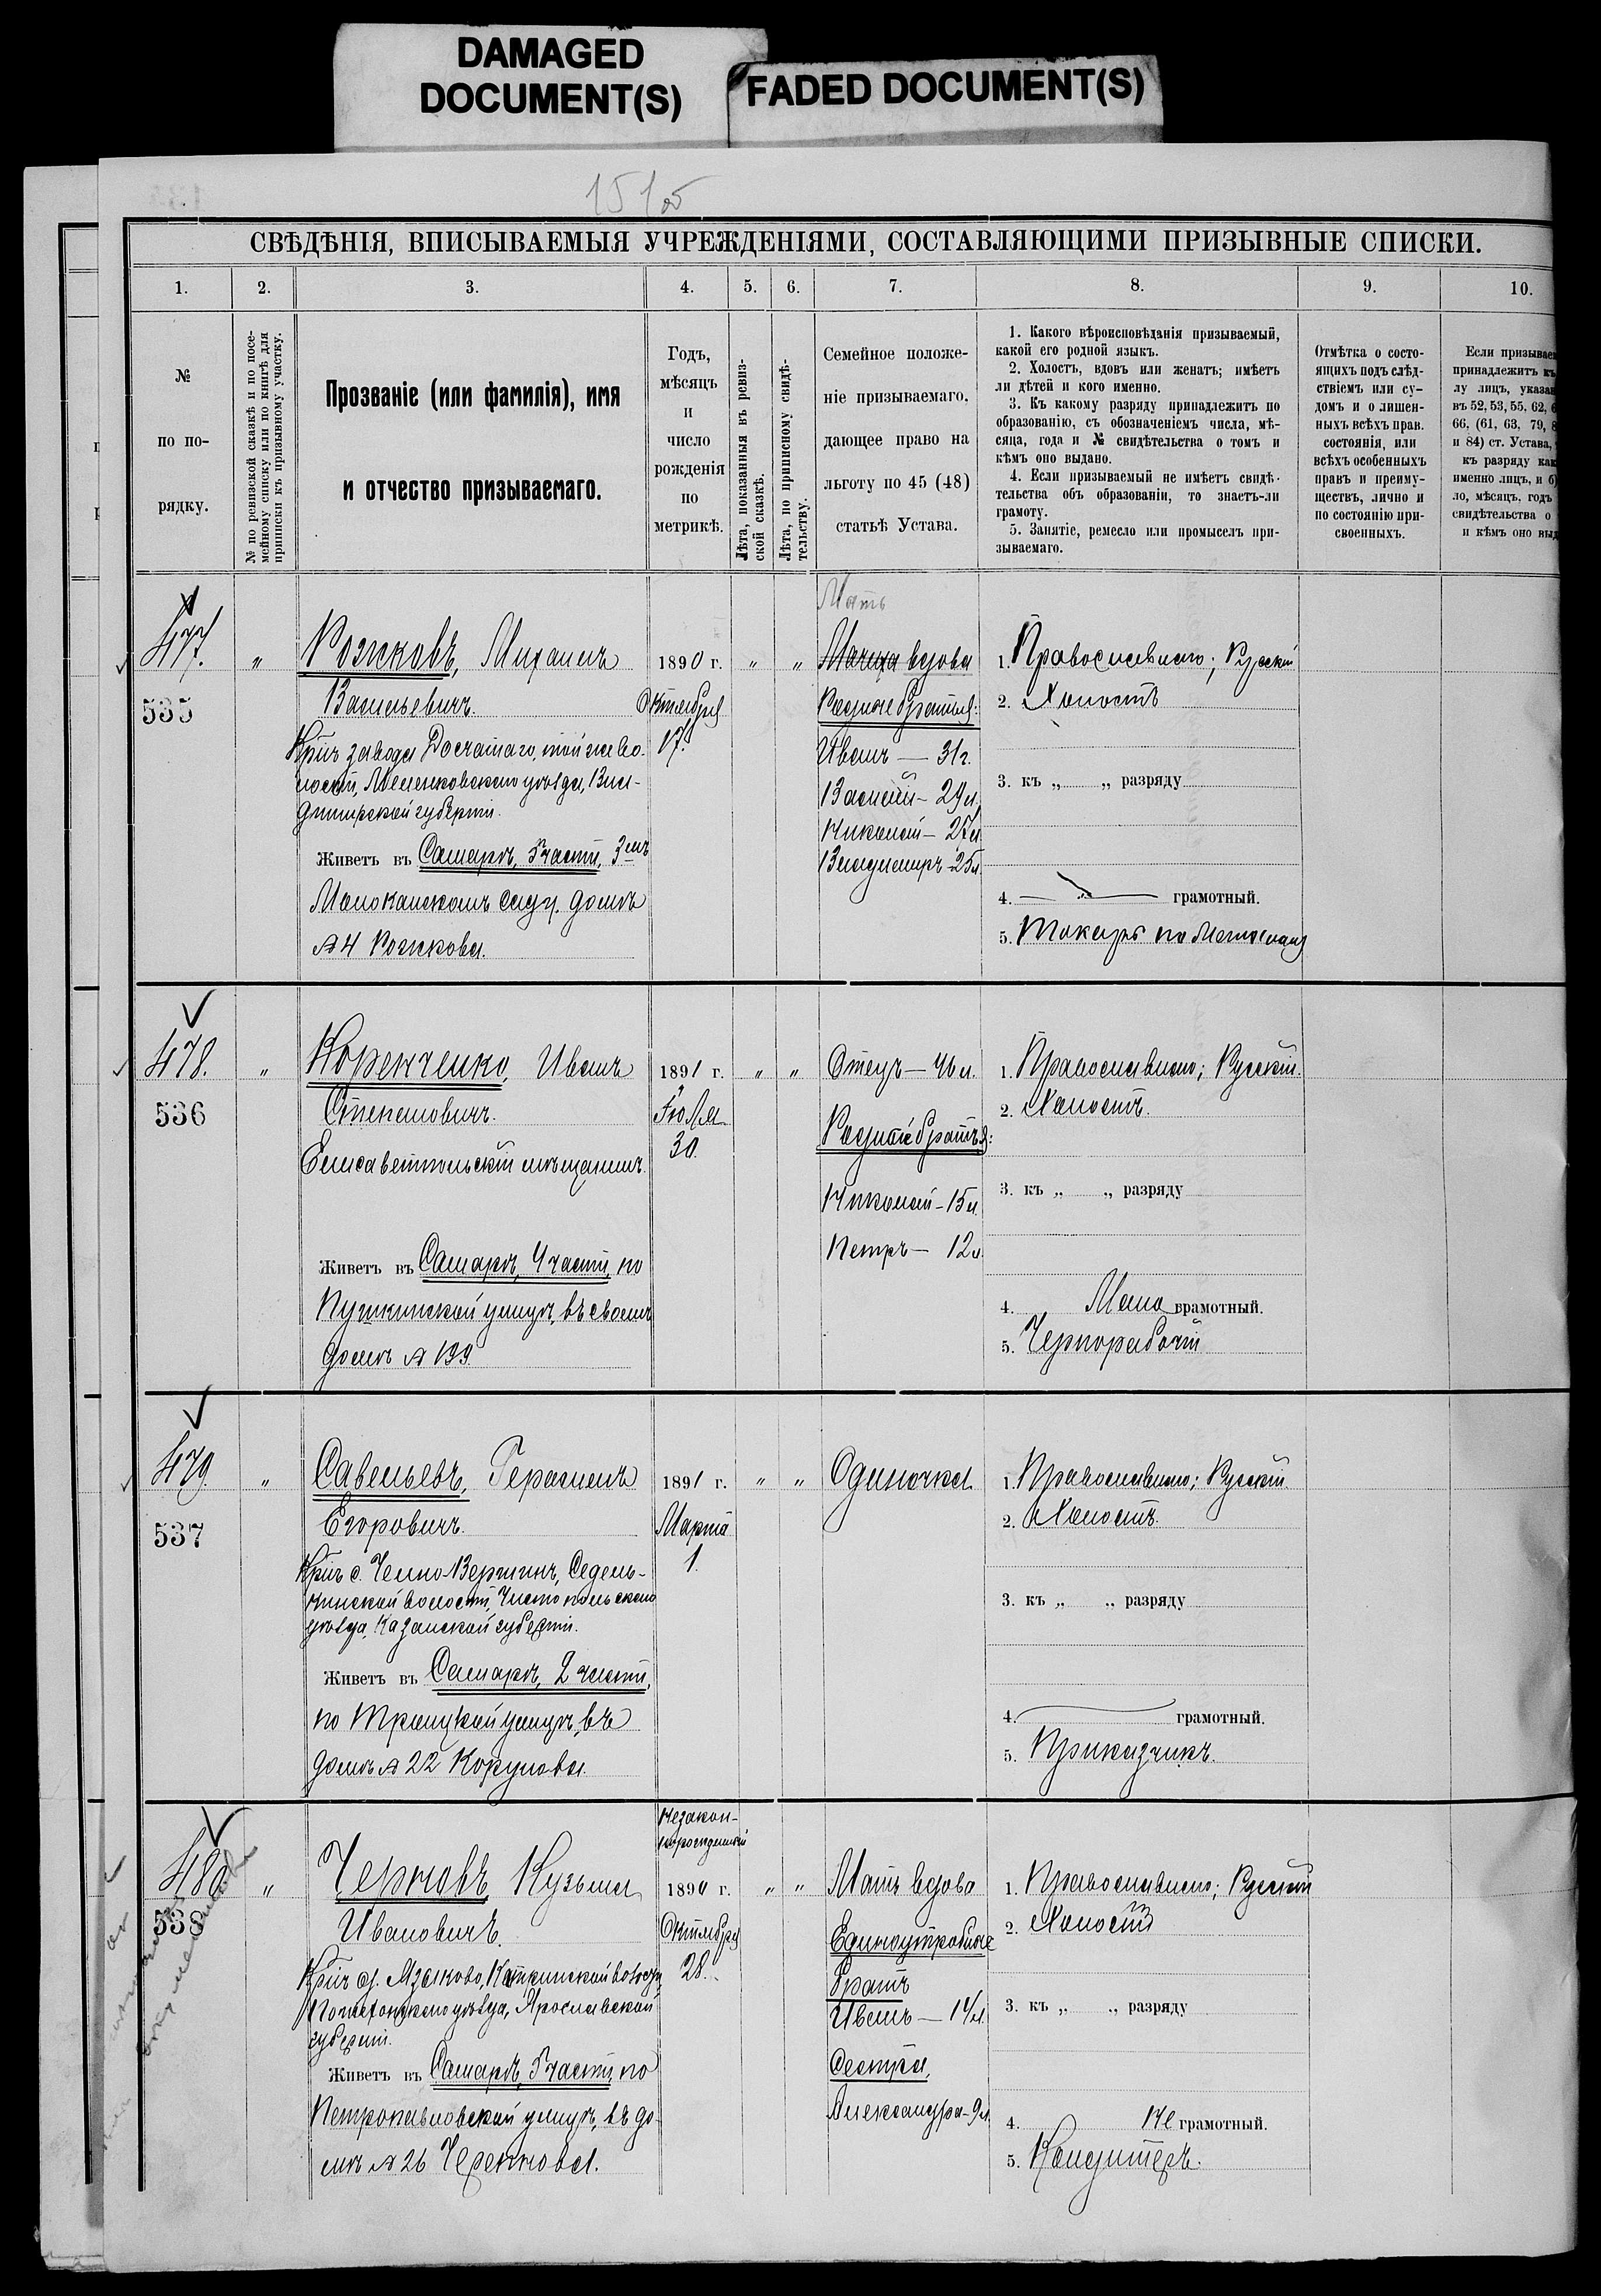 DAMAGED
DOCUMENT(S)
FADED DOCUMENT(S)
СВѢДѢНІЯ, ВПИСЫВАЕМЫЯ УЧРЕЖДЕНІЯМИ, СОСТАВЛЯЮЩИМИ ПРИЗЫВНЫЕ СПИСКИ.
1. 2. 3. 4. 5. 6. 7. 8. 9. 10.
№
по по-
рядку.
№ по ревизской сказкѣ и по посе-
мейному списку или по книгѣ для
приписки къ призывному участку.
Прозваніе (или фамилія), имя
и отчество призываемаго.
Годъ,
мѣсяцъ
и
число
рожденія
по
метрикѣ.
Лѣта, показанныя въ ревиз-
ской сказкѣ.
Лѣта, по приписному свидѣ-
тельству.
Семейное положе-
ніе призываемаго.
дающее право на
льготу по 45 (48)
статьѣ Устава.
1. Какого вѣроисповѣданія призываемый,
какой его родной языкъ.
2. Холостъ, вдовъ или женатъ; имѣетъ
ли дѣтей и кого именно.
3. Къ какому разряду принадлежитъ по
образованію, съ обозначеніемъ числа, мѣ-
сяца, года и № свидѣтельства о томъ и
кѣмъ оно выдано.
4. Если призываемый не имѣетъ свидѣ-
тельства объ образованіи, то знаетъ-ли
грамоту.
5. Занятіе, ремесло или промыселъ при-
зываемаго.
Отмѣтка о состо-
ящихъ подъ слѣд-
ствіемъ или су-
домъ и о лишен-
ныхъ всѣхъ прав.
состоянія, или
всѣхъ особенныхъ
правъ и преиму-
ществъ, лично и
по состоянію при-
своенныхъ.
Если призывае
принадлежитъ къ
лу лицъ, указан
въ 52, 53, 55, 62,
66, (61, 63, 79,
и 84) ст. Устава,
къ разряду как
именно лицъ, и б)
ло, мѣсяцъ, годъ
свидѣтельства о
и кѣмъ оно выд
477.
535
„
Рожковъ, Михаилъ
Васильевичъ.
Кр–нъ завода Досчатаго, той же во-
лости, Меленковскаго уѣзда, Вла-
димірской губерніи.
Живетъ въ Самарѣ, 5 части, 3емъ
Молоканскомъ саду, домѣ
№ 4 Рожкова.
1890 г.
Октября
17.
„ „
Мать
вдова
Родные братья:
Иванъ — 31 г.
Василій — 29 л.
Николай — 27 л.
Владиміръ — 25 л.
1. Православнаго; Русскій
2. Холостъ
3. къ „ „ разряду
4. грамотный.
5. Токарь по металлу
478.
536
„
Коренченко, Иванъ
Степановичъ.
Елисаветпольскій мѣщанинъ.
Живетъ въ Самарѣ, 4 части, по
Пушкинской улицѣ, въ своемъ
домѣ № 199.
1891 г.
Іюля
30.
„ „
Отецъ — 46 л.
Родные братья:
Николай — 15 л.
Петръ — 12 л.
1. Православнаго; Русскій.
2. Холостъ.
3. къ „ „ разряду
4. Мало грамотный.
5. Чернорабочій
479.
537
„
Савельевъ, Герасимъ
Егоровичъ.
Кр–нъ с. Челно-Вершинъ, Седель-
кинской волости, Чистопольскаго
уѣзда, Казанской губерніи.
Живетъ въ Самарѣ, 2 части,
по Троицкой улицѣ, въ
домѣ № 22
1891 г.
Марта
1.
„ „
Одиночка.
1. Православнаго; Русскій.
2. Холостъ.
3. къ „ „ разряду
4. грамотный.
5. Приказчикъ.
480
538
„
Черновъ Кузьма
Ивановичъ.
Пошехонскаго уѣзда, Ярославской
губерніи.
Живетъ въ Самарѣ, 5 части, по
Петропавловской улицѣ, въ до-
мѣ № 26
Незакон-
норожденный
1890 г.
Октября
28.
„ „
Мать вдова
Единоутробные
братъ
Иванъ — 14 л.
Сестра,
Александра — 9 л.
1. Православнаго; Русскій
2. Холостъ
3. къ „ „ разряду
4. Не грамотный.
5. Кондитеръ.